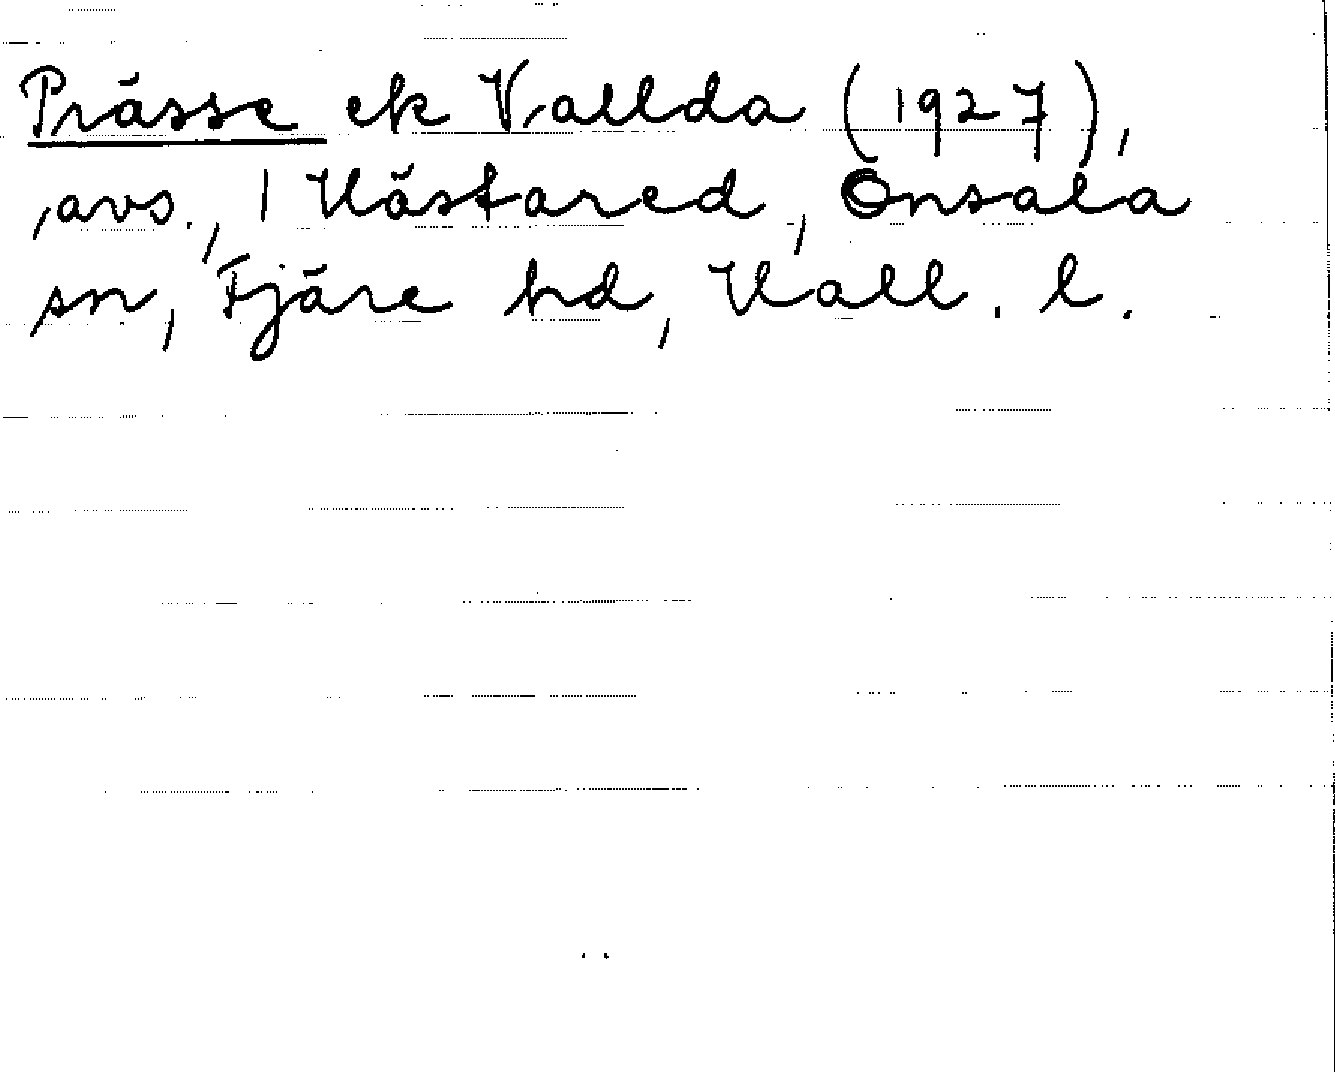 Prässe ek Vallda (1927),
avs., 1 Hästared, Onsala
sn, Fjäre hd, Hall. l.